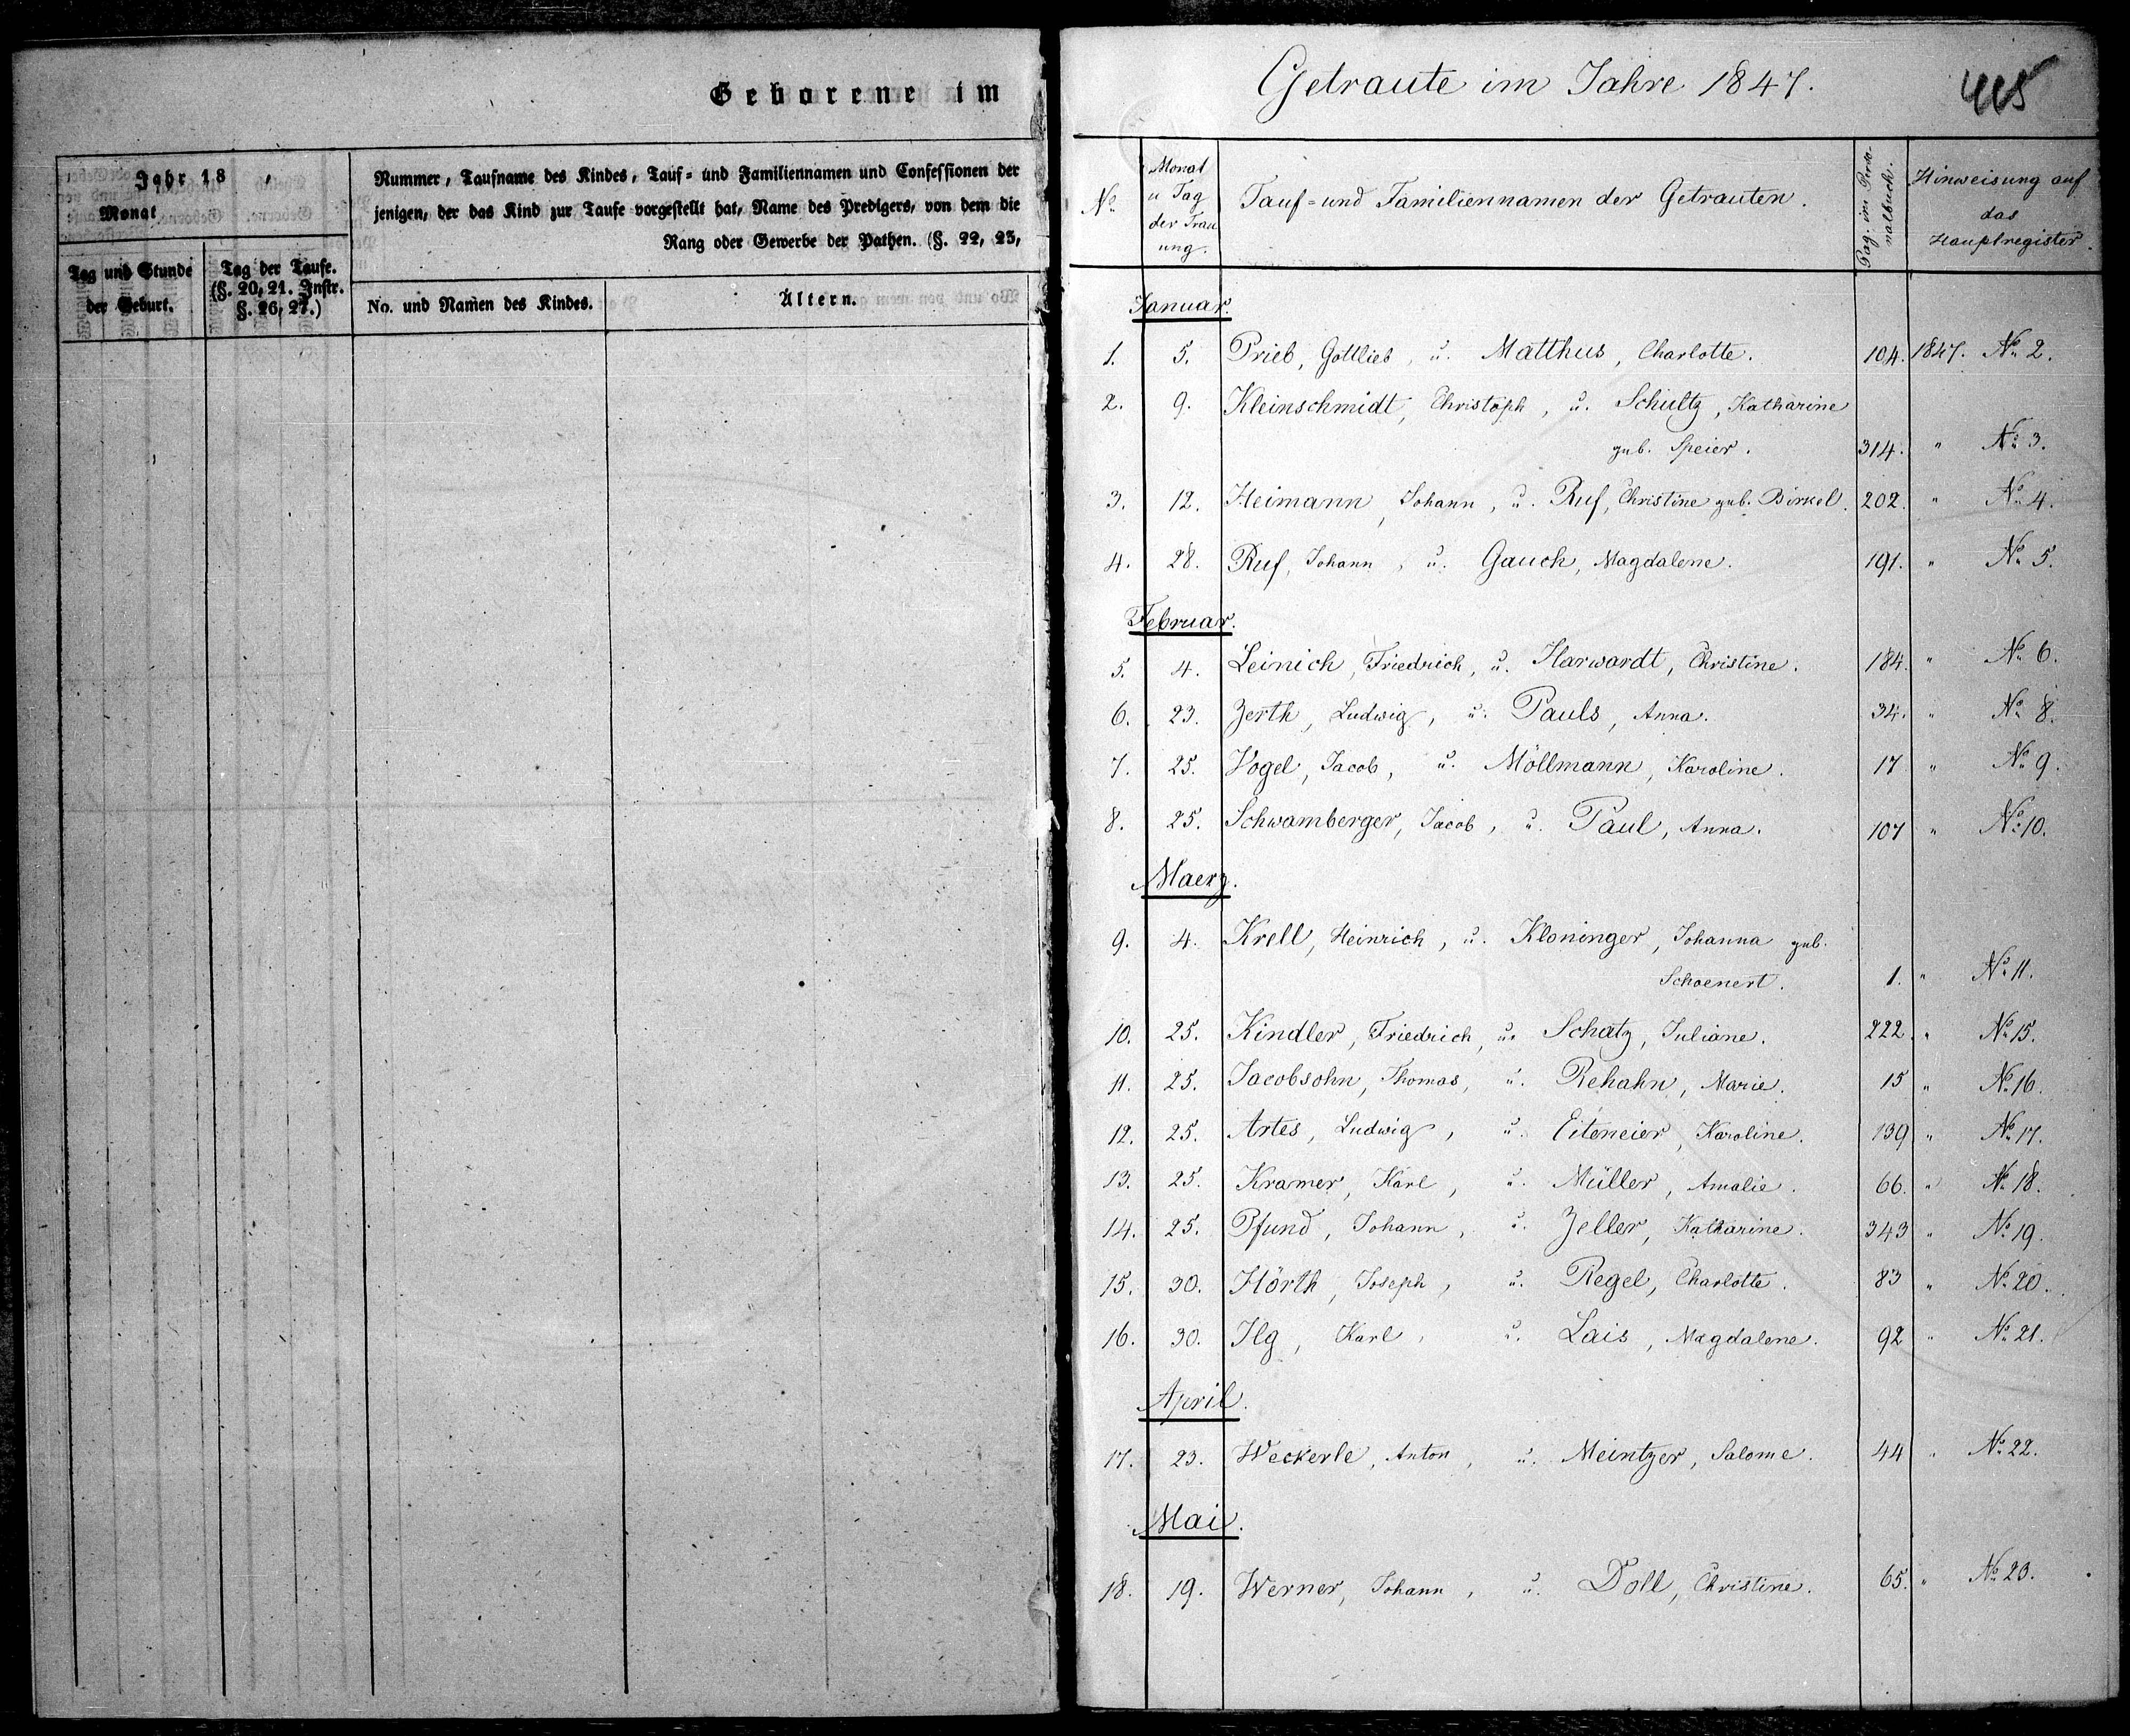 Geborene im
Jahr 18 ,
Monat
Tag und Stunde
der Geburt.
Tag der Taufe.
(§. 20, 21. Instr.
§. 26, 27.)
Nummer, Taufname des Kindes, Tauf- und Familiennamen und Confessionen der
jenigen, der das Kind zur Taufe vorgestellt hat, Name des Predigers, von dem die
Rang oder Gewerbe der Pathen. (§. 22, 23,
No. und Namen des Kindes.
Ältern.
Getraute im Jahre 1847.
415
No.
Monat
u Tag
der Trau
ung.
Tauf- und Familiennamen der Getrauten.
Pag. im Perso-
nalbuch.
Hinweisung auf
das
Hauptregister.
Januar.
1. 5. Prieb, Gottlieb, u. Matthus, Charlotte. 104. 1847. No. 2.
2. 9. Kleinschmidt, Christoph, u. Schultz, Katharine
geb. Speier. 314. " No. 3.
3. 12. Heimann, Johann, u. Ruf, Christine geb. Birkel. 202. " No. 4.
4. 28. Ruf, Johann, u. Gauch, Magdalene. 191. " No. 5.
Februar.
5. 4. Leinich, Friedrich, u. Harwardt, Christine. 184. " No. 6.
6. 23. Zerth, Ludwig, u. Pauls, Anna. 34. " No. 8.
7. 25. Vogel, Jacob, u. Möllmann, Karoline. 17 " No. 9.
8. 25. Schwamberger, Jacob, u. Paul, Anna. 107 " No. 10.
Maerz.
9. 4. Krell, Heinrich, u. Kloninger, Johanna geb.
Schoenert. 1. " No. 11.
10. 25. Kindler, Friedrich, u. Schatz, Juliane. 222. " No. 15.
11. 25. Jacobsohn, Thomas, u. Rehahn, Marie. 15 " No. 16.
12. 25. Artes, Ludwig, u. Eiteneier, Karoline. 139 " No. 17.
13. 25. Kramer, Karl, u. Müller, Amalie. 66. " No. 18.
14. 25. Pfund, Johann, u. Zeller, Katharine. 343 " No. 19.
15. 30. Hörth, Joseph, u. Regel, Charlotte. 83 " No. 20.
16. 30. Ilg, Karl, u. Lais, Magdalene. 92 " No. 21.
April.
17. 23. Weckerle, Anton, u. Meintzer, Salome. 44 " No. 22.
Mai.
18. 19. Werner, Johann, u. Doll, Christine. 65. " No. 23.